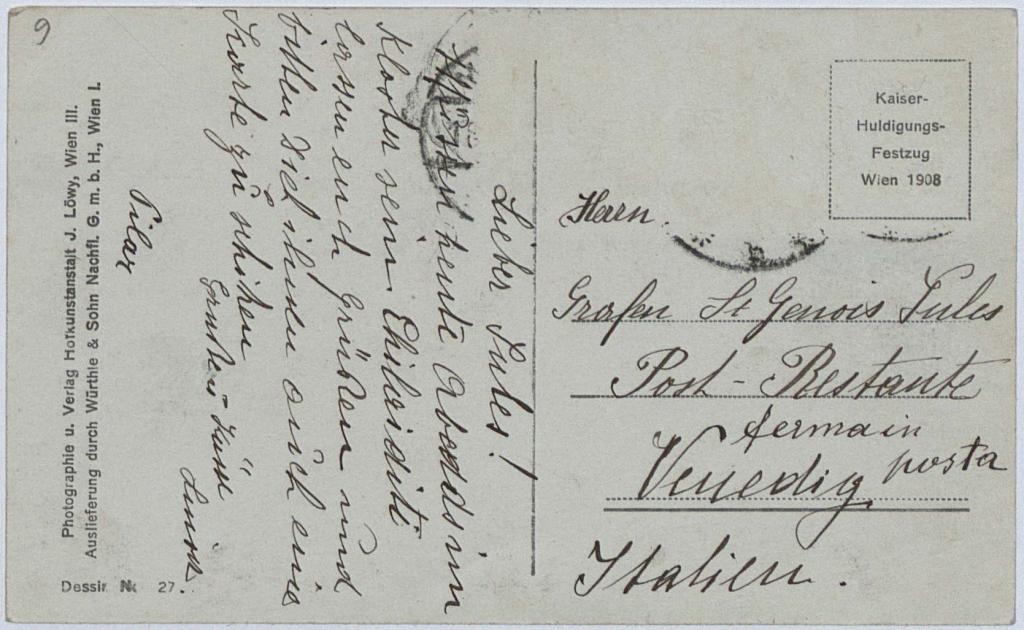 9
Lieber Jules!
Müssen heute Abends im
Kloster sein
lassen euch Grüßen und
bitten Dich ihnen auch eine
Karte zu schicken
Luise
Pilar
Photographie u. Verlag Hofkunstanstalt J. Löwy, Wien III.
Auslieferung durch Würthle & Sohn Nachfl. G. m. b. H., Wien I.
Dessin Nr. 27.
Kaiser-
Huldigungs-
Festzug
Wien 1908
Herrn
Grafen St Genois Jules
Post-Restante
fermain
posta
Venedig
Italien.